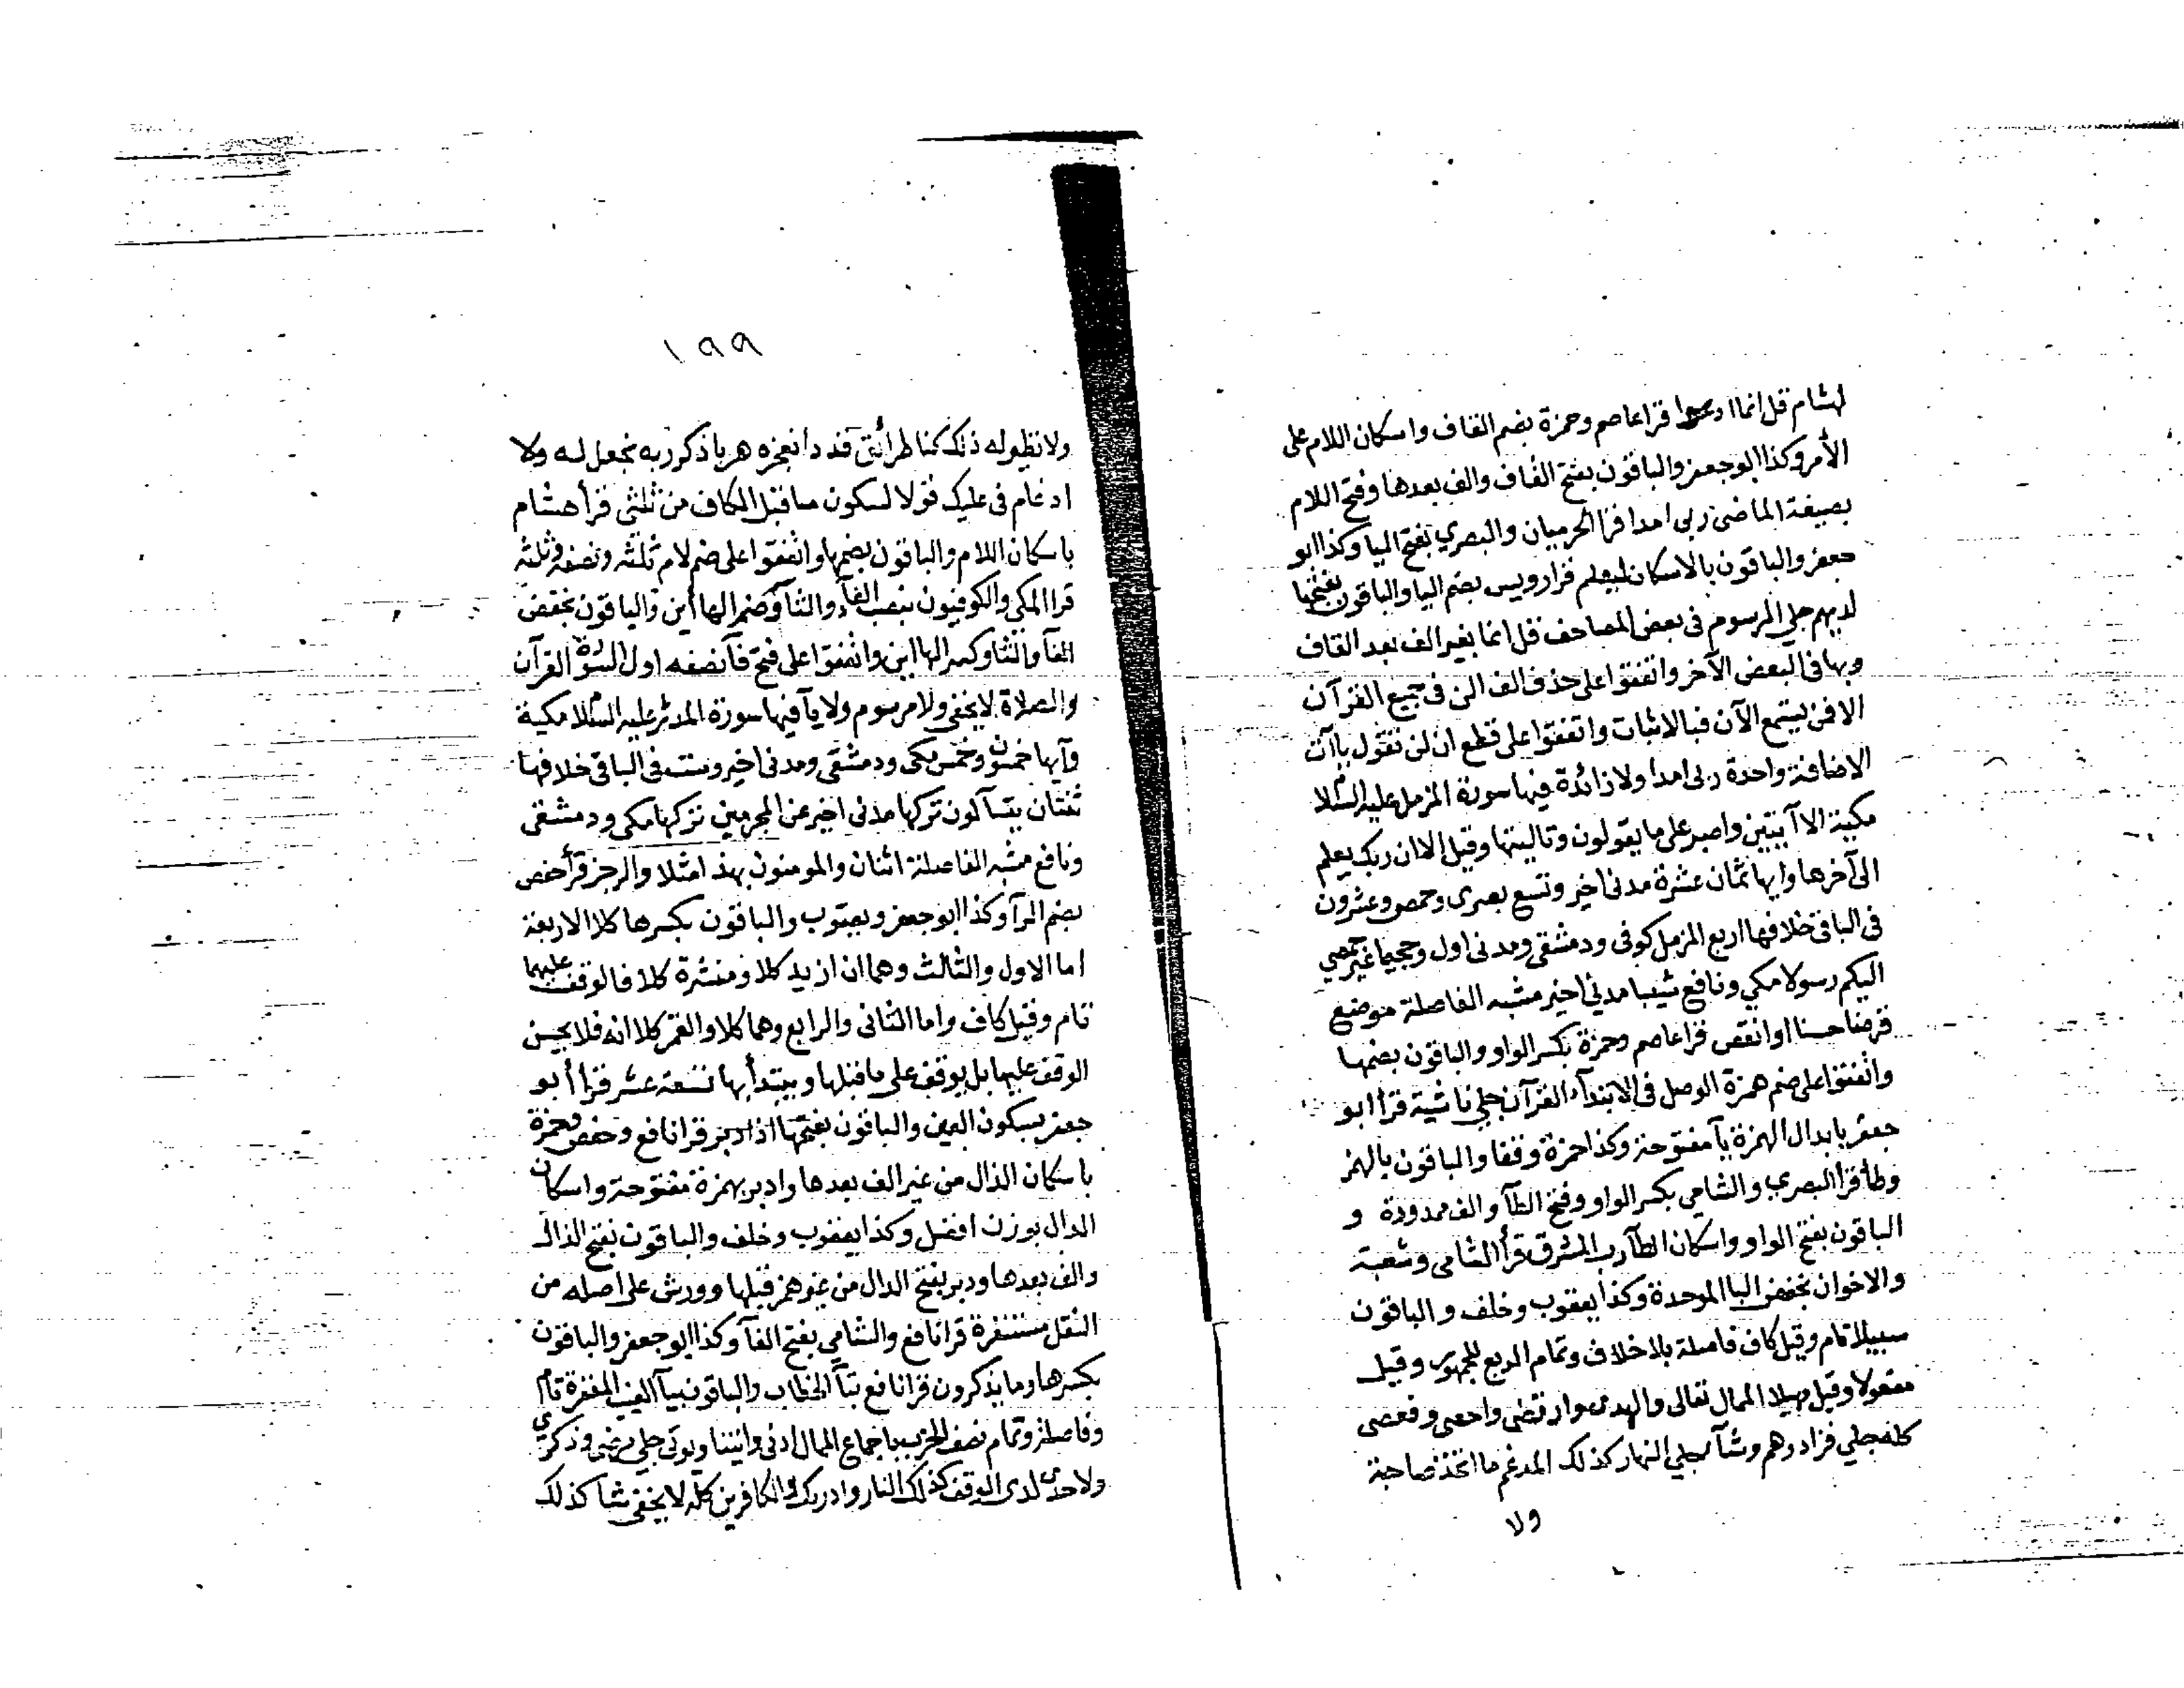 لهشام قل انما ادعوا قرا عاصم وحمزة بضم القاف واسكان اللام على
الأمر وكذا ابو جعفر والباقون بفتح القاف والف بعدها وفتح اللام
بصيغة الماضي ربي امدا قرا الحرميان والبصري بفتح اليا وكذا ابو
جعفر والباقون بالاسكان ليعلم قرا رويس بضم اليا والباقون بفتحها
لديهم جلي المرسوم في بعض المصاحف قل انما بغير الف بعد القاف
وبها في البعض الآخر واتفقوا على حذف الف الن في جميع القرآن
الا فمن يستمع الآن فبالاثبات واتفقوا على قطع ان لن تقول ياآت
الاضافة واحدة ربي امدا ولا زائدة فيها سورة المزمل عليه السلام
مكية الا آيتين واصبر على ما يقولون وتاليتها وقيل الا ان ربك يعلم
الى آخرها وآيها ثمان عشرة مدني اخير وتسع بصرى وحمص وعشرون
في الباقى خلافها اربع المزمل كوفى ودمشقى ومدنى اول وجحيما غير حمصي
اليكم رسولا مكي ونافع شيبا مدني اخير مشبه الفاصلة موضع
قرضا حسنا او انقص قرا عاصم وحمزة بكسر الواو والباقون بضمها
واتفقوا على ضم همزة الوصل في الابتدآء القرآن جلي ناشية قرأ ابو
جعفر بابدال الهمزة يآ مفتوحة وكذا حمزة وقفا والباقون بالهمز
وطأ قرا البصري والشامي بكسر الواو وفتح الطآ والف ممدودة و
الباقون بفتح الواو واسكان الطآ رب المشرق قرأ الشامى وشعبة
والاخوان بخفض البا الموحدة وكذا يعقوب وخلف والباقون
سبيلا تام وقيل كاف فاصلة بلا خلاف وتمام الربع للجمهور وقيل
مفعولا وقيل مهيلا الممال تعالى والهدى وارتضى واحصى وفعصى
كله جلي فزادوهم وشآ جلي النهار كذلك المدغم ما اتخذ صاحبة
ولا
١٩٩
ولا نظيره له ذلك كنا طرائق قددا نعجزه هربا ذكر ربه يجعل له ولا
ادغام فى عليك قولا لسكون ما قبل الكاف من ثلثى قرأ هشام
باسكان اللام والباقون بضمها واتفقوا على ضم لام ثلثه ونصفه وثلثه
قرا المكى والكوفيون بنصب الفآء والثآ وضم الهاأين والباقون بخفض
الفآ والثا وكسر الهااين واتفقوا على فتح فآ نصفه اول السورة القرآن
والصلاة لا يخفى ولا مرسوم ولا يآ فيها سورة المدثر عليه السلام مكية
وآيها خمسون وخمس مكى ودمشقى ومدنى اخير وست فى الباقى خلافها
ثنتان يتسآلون تركها مدنى اخير عن المجرمين تركها مكى ودمشقى
ونافع مشبه الفاصلة اثنان والمومنون بهذا مثلا والرجز قرأ حفص
بضم الرآ وكذا ابو جعفر ويعقوب والباقون بكسرها كلا الاربعة
اما الاول والثالث وهما ان ازيد كلا ومنشرة كلا فالوقف عليهما
تام وقيل كاف واما الثانى والرابع وهما كلا والقمر كلا انه فلا يحسن
الوقف عليهما بل يوقف على ما قبلها ويبتدأ بها تسعة عشر قرأ أبو
جعفر بسكون العين والباقون بفتحها اذا دبر قرا نافع وحفص وحمزة
باسكان الذال من غير الف بعدها وادبر بهمزة مفتوحة واسكان
الدال بوزن افضل وكذا يعقوب وخلف والباقون بفتح الذال
والف بعدها ودبر بفتح الدال من غير همز قبلها وورش على اصله من
النقل مستنفرة قرا نافع والشامي بفتح الفآ وكذا ابو جعفر والباقون
بكسرها وما يذكرون قرا نافع بتآ الخطاب والباقون بيآ الغيب المغفرة تام
وفاصلة وتمام نصف الحزب باجماع الممال ادنى واتينا ويوتى جلي مرضى وذكرى
ولاحدى لدى الوقف كذلك النار وادريك والكافرين كله لا يخفى شا كذلك